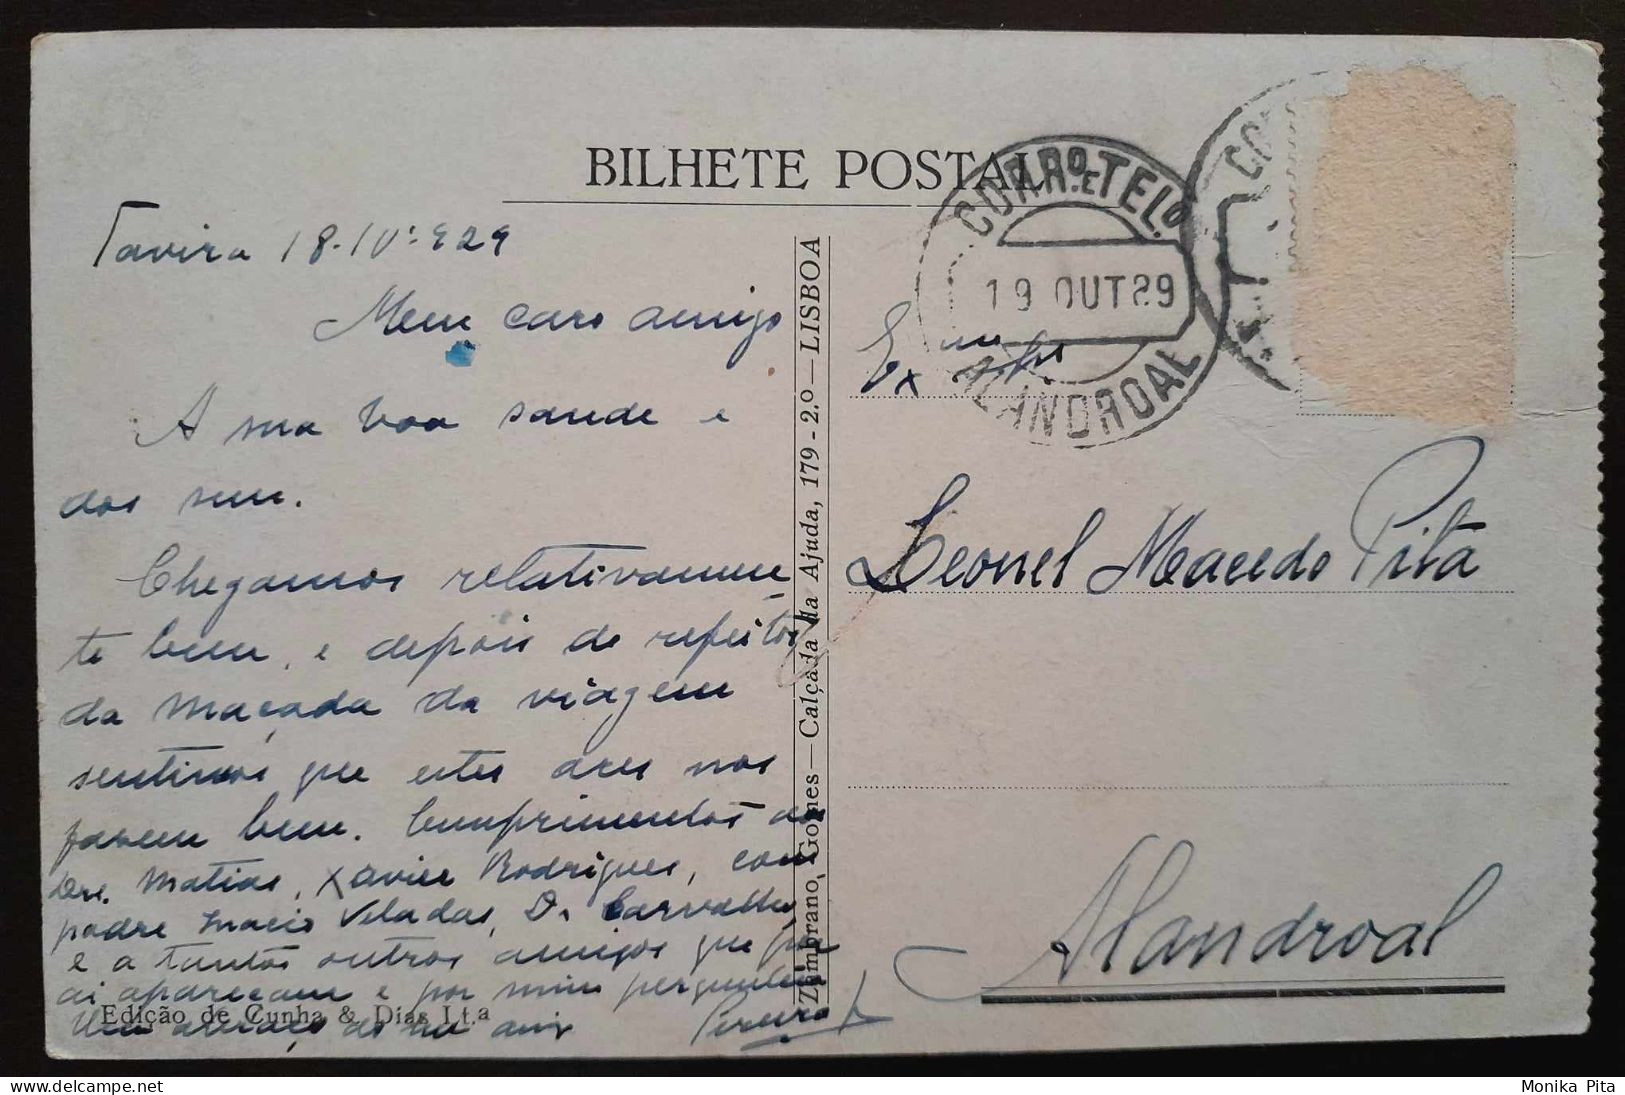 BILHETE POSTAL
CORR.º E TEL.º
19 OUT 29
ALANDROAL
Tavira 18-IV-929
Meu caro amigo
A sua boa saude e
dos seus.
Chegamos relativamen-
te bem, e depois de refeitos
da maçada da viagem
sentimos que estes ares nos
fazem bem. Cumprimentos aos
Drs. Matias, Xavier Rodrigues, com
padre Inacio Veladas, D. Carvalho
e a tantos outros amigos que por
ai apareçam e por mim perguntem
Um abraço do seu am.º Pereira
Edição de Cunha & Dias Lt.ª
Zambrano, Gomes—Calçada da Ajuda, 179-2.º—LISBOA
Ex.mo Sr.
Leonel Macedo Pita
Alandroal
Monika Pita